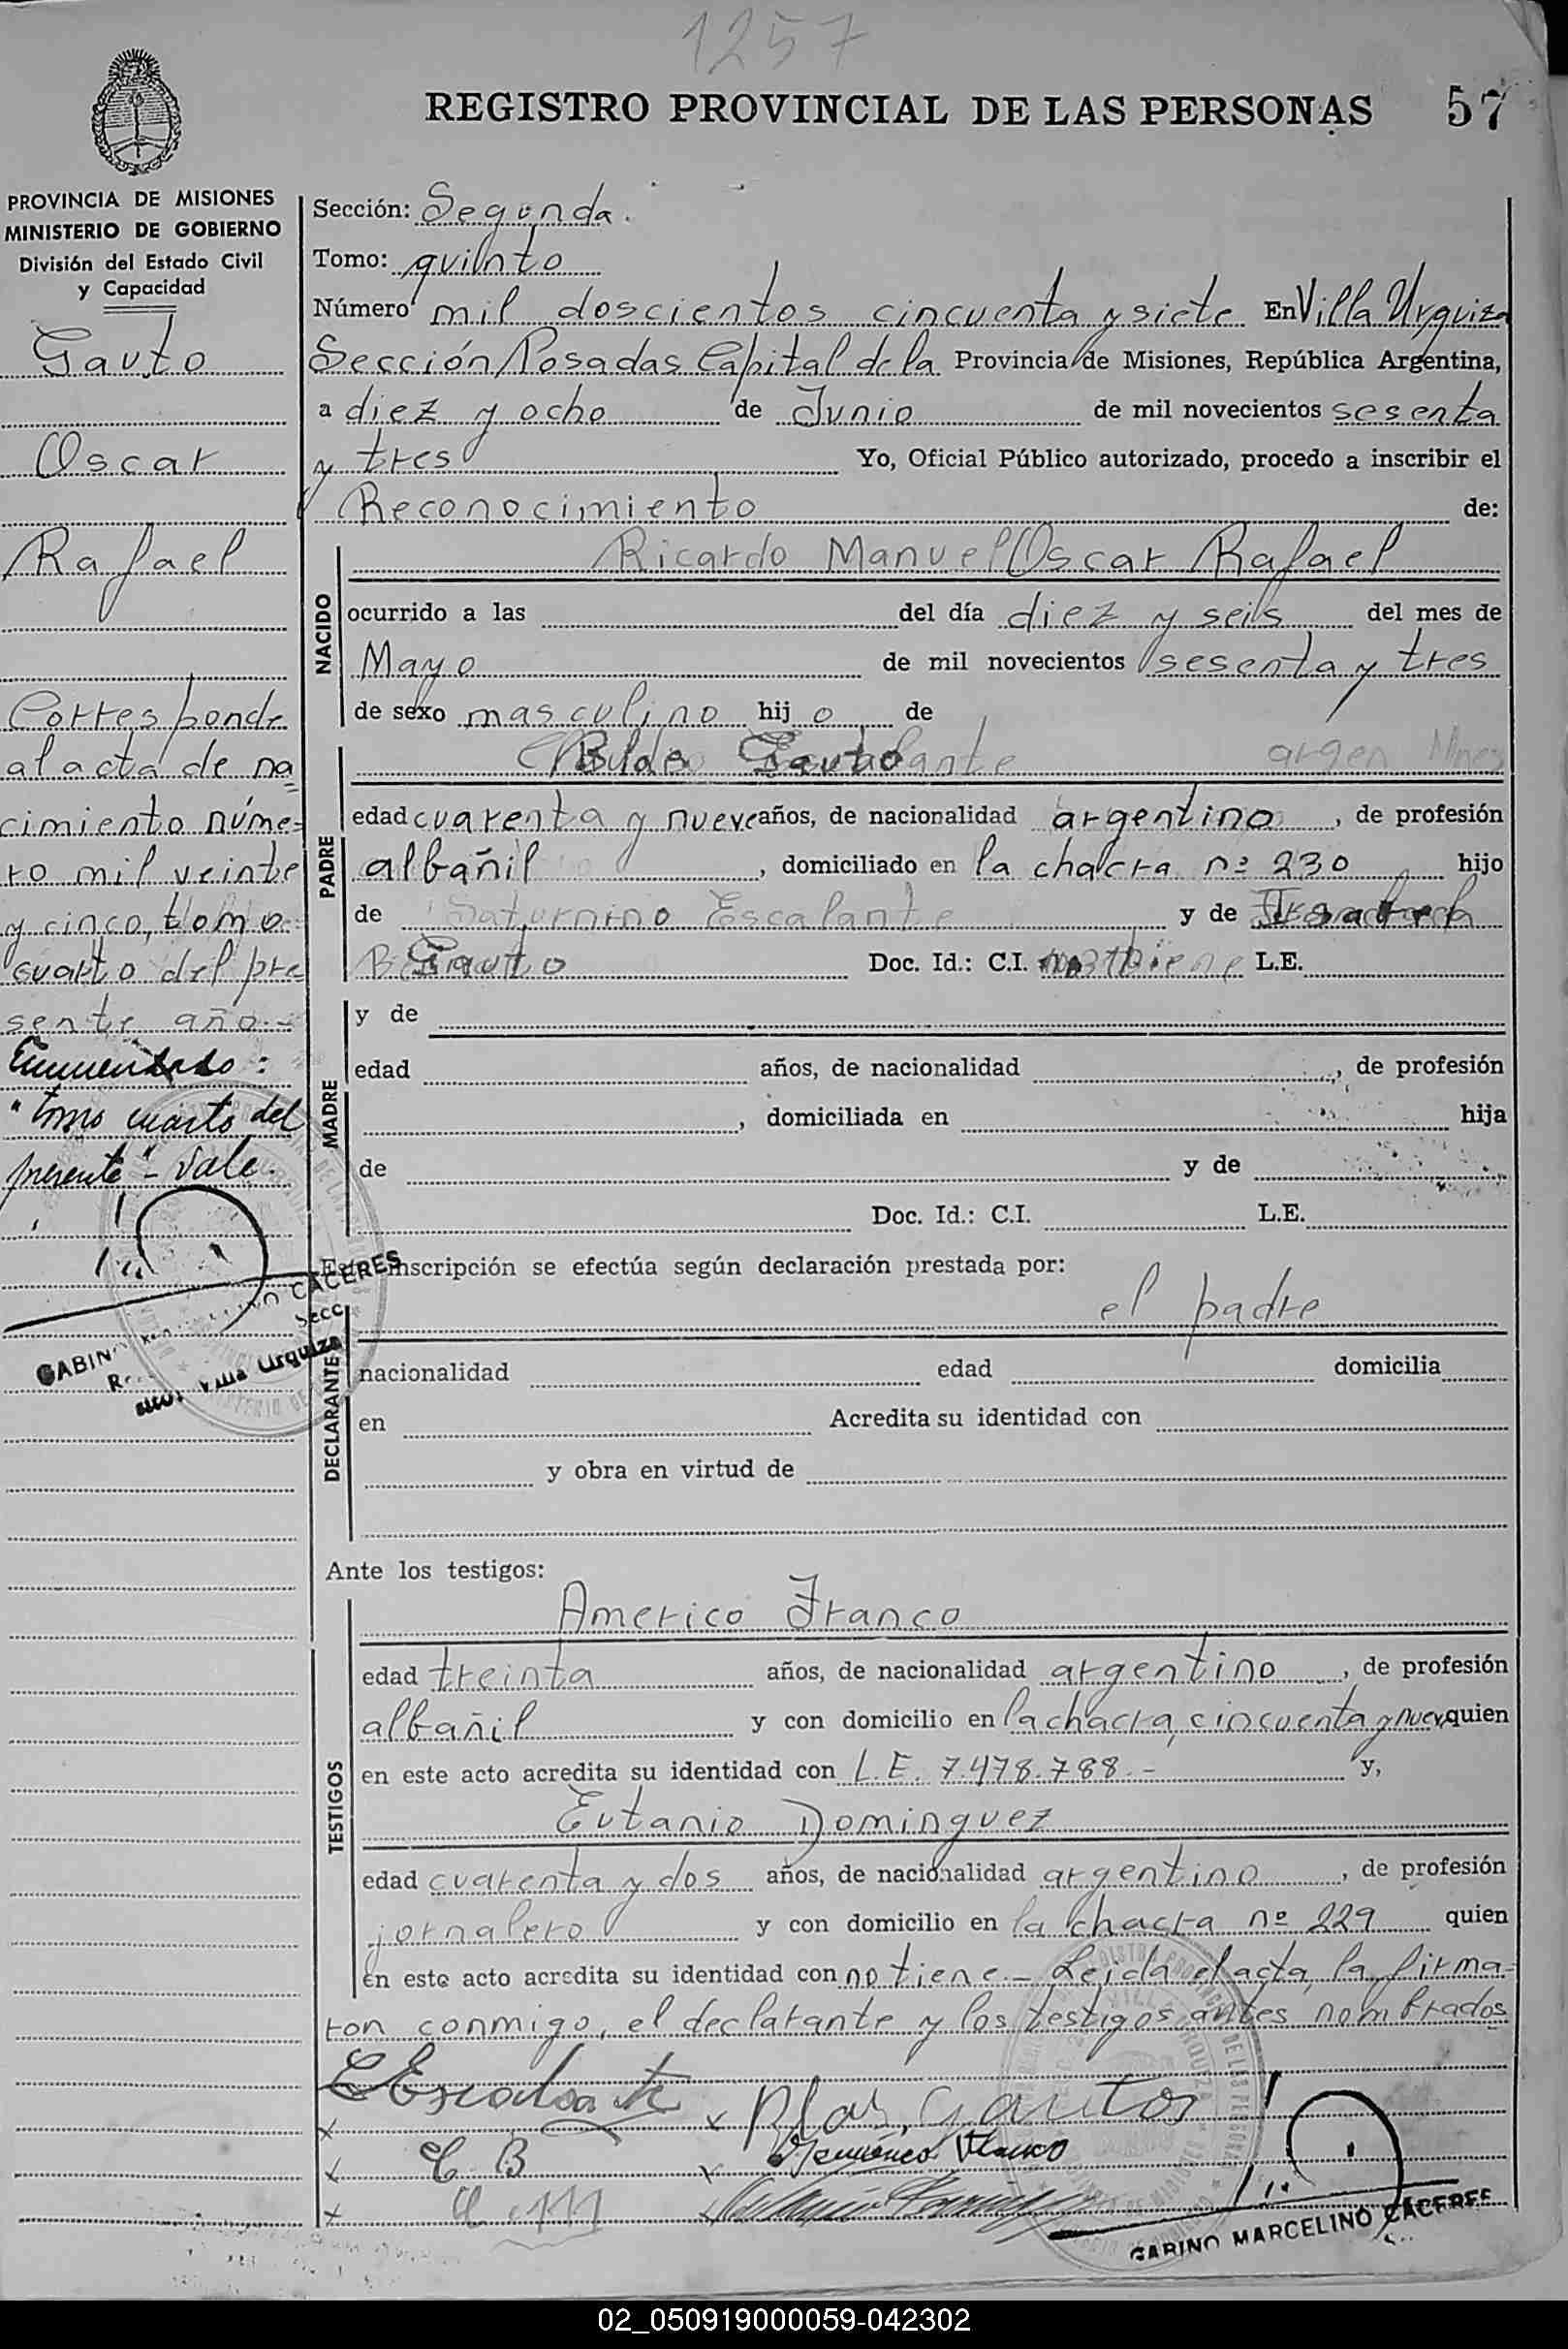 1257
REGISTRO PROVINCIAL DE LAS PERSONAS 57
PROVINCIA DE MISIONES
MINISTERIO DE GOBIERNO
División del Estado Civil
y Capacidad
Gauto
Oscar
Rafael
Corresponde
al acta de na
cimiento núme-
ro mil veinte
y cinco, tomo
cuarto del pre
sente año.-
Enmendado:
"tomo cuarto del
presente" - Vale.
Sección: Segunda.
Tomo: quinto
Número mil doscientos cincuenta y siete En Villa Urquiza
Sección Posadas Capital de la Provincia de Misiones, República Argentina,
a diez y ocho de Junio de mil novecientos sesenta
y tres Yo, Oficial Público autorizado, procedo a inscribir el
Reconocimiento de:
NACIDO
Ricardo Manuel Oscar Rafael
ocurrido a las del día diez y seis del mes de
Mayo de mil novecientos sesenta y tres
de sexo masculino hijo de
PADRE
Gauto
edad cuarenta y nueve años, de nacionalidad argentino, de profesión
albañil, domiciliado en la chacra nº 230 hijo
de Saturnino Escalante y de
Gauto Doc. Id.: C.I. L.E.
MADRE
y de
edad años, de nacionalidad , de profesión
, domiciliada en hija
de y de
Doc. Id.: C.I. L.E.
inscripción se efectúa según declaración prestada por:
el padre
DECLARANTE
nacionalidad edad domicilia
en Acredita su identidad con
y obra en virtud de
Ante los testigos:
TESTIGOS
Americo Franco
edad treinta años, de nacionalidad argentino, de profesión
albañil y con domicilio en la chacra cincuenta y nueve quien
en este acto acredita su identidad con L.E. 7.478.788.- y,
Eutanio Dominguez
edad cuarenta y dos años, de nacionalidad argentino, de profesión
jornalero y con domicilio en la chacra nº 229 quien
en este acto acredita su identidad con no tiene.- Leida el acta, la firma-
ron conmigo, el declarante y los testigos antes nombrados
Escalante
Blas Gauto
GABINO MARCELINO CACERES
CACERES
Villa Urquiza
02_050919000059-042302